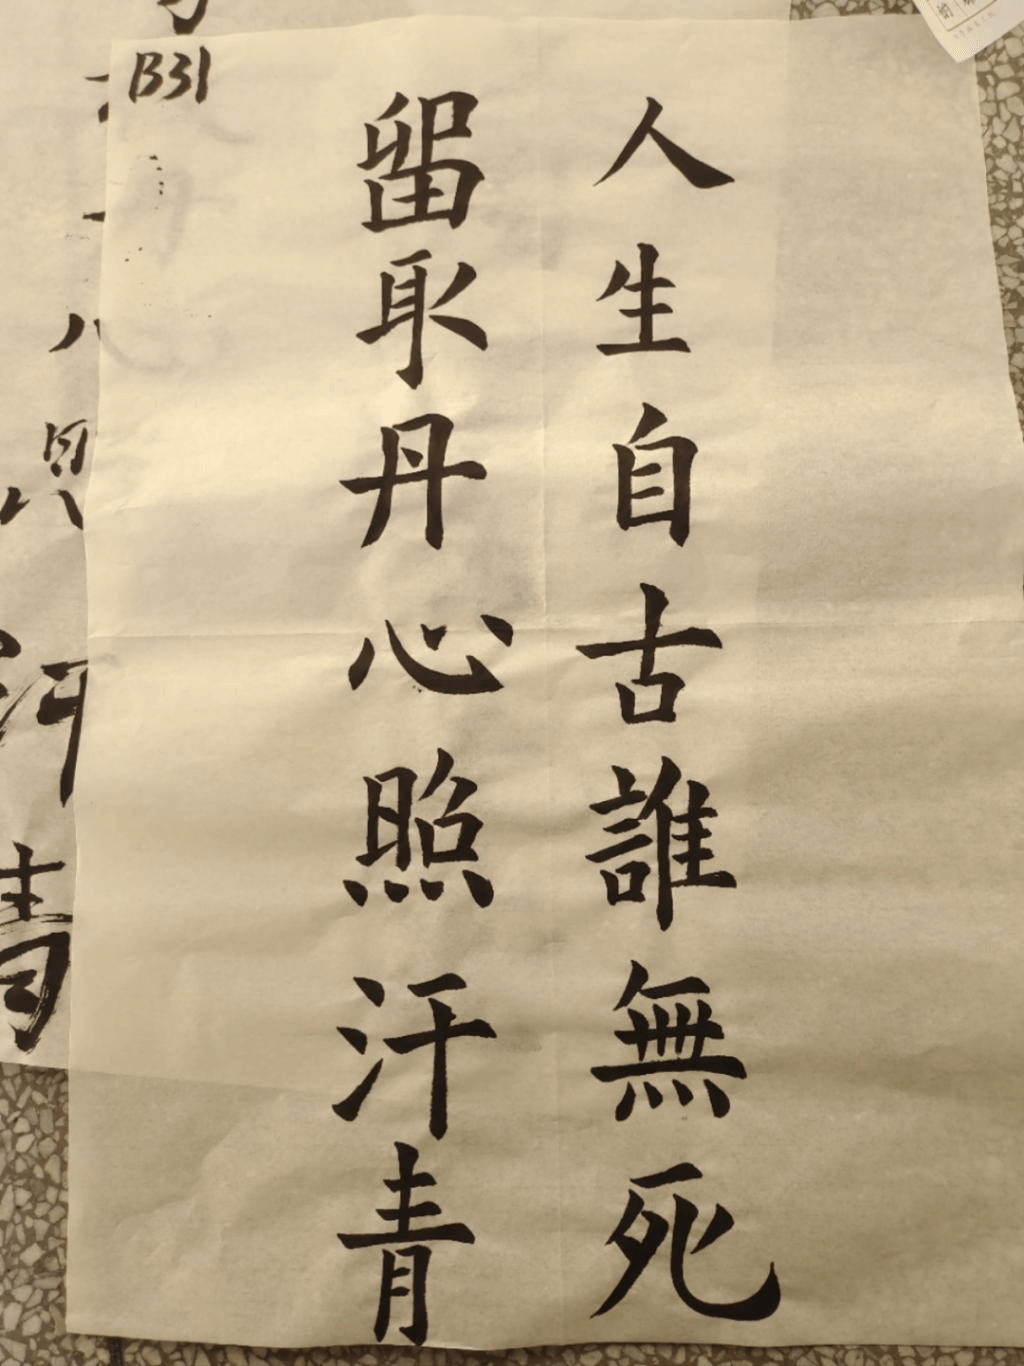 人生自古誰無死
留取丹心照汗青
B31
汗
青